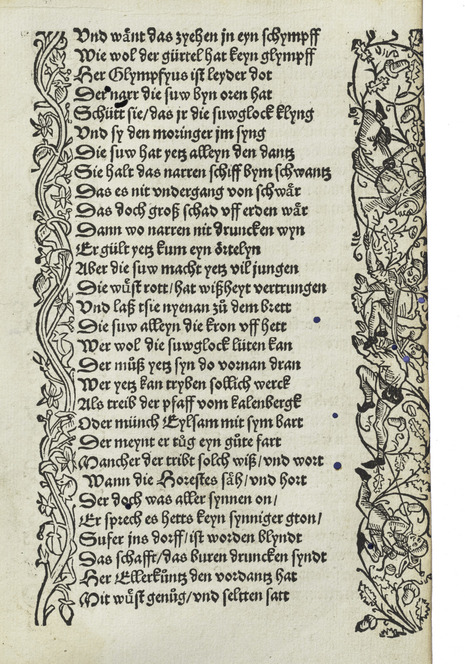 Vnd wånt das zyehen jn eyn schympff
Wie wol der gürtel hat keyn glympff
Her Glympfyus ist leyder dot
Der narr die suw byn oren hat
Schütt sie/das jr die suwglock klyng
Vnd sy den moringer jm syng
Die suw hat yetz alleyn den dantz
Sie halt das narren schiff bym schwantz
Das es nit vndergang von schwår
Das doch groß schad vff erden wår
Dann wo narren nit druncken wyn
Er gült yetz kum eyn örtelyn
Aber die suw macht yetz vil jungen
Die wůst rott/hat wißheyt vertrungen
Vnd laß tsie nyenan zů dem brett
Die suw alleyn die kron vff hett
Wer wol die suwglock lüten kan
Der můß yetz syn do vornan dran
Wer yetz kan tryben sollich werck
Als treib der pfaff vom kalenbergk
Oder münch Eylsam mit sym bart
Der meynt er tůg eyn gůte fart
Mancher der tribt solch wiß/vnd wort
Wann die Horestes såh/vnd hort
Der doch was aller synnen on/
Er sprech es hetts keyn synniger gton/
Sufer jns dorff/ist worden blyndt
Das schafft/das buren druncken syndt
Her Ellerkůntz den vordantz hat
Mit wůst genůg/vnd seltten satt